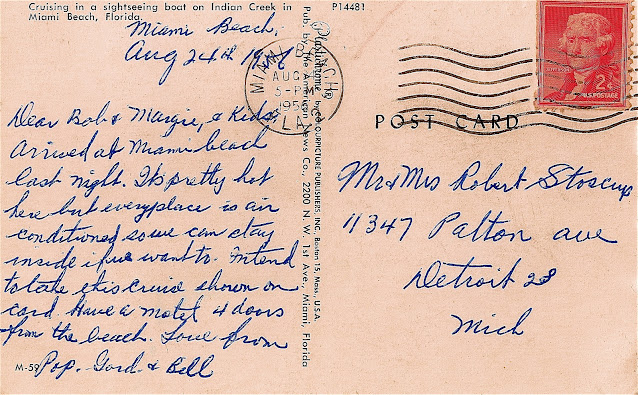 Cruising in a sightseeing boat on Indian Creek in
Miami Beach, Florida.
P14481
Miami Beach,
Aug 24th
Dear Bob & Margie, & Kids,
Arrived at Miami beach
last night. Its pretty hot
here but everyplace is air
conditioned so we can stay
inside if we want to. Intend
to take this cruise shown on
card. Have a motel 4 doors
from the beach. Love from
Pop. Gord. & Bill
M-59
Plastichrome by COLOURPICTURE PUBLISHERS, INC., Boston 15, Mass., USA.
Pub. by the American News Co., 2200 N. W. 1st Ave., Miami, Florida
MIAMI BEACH
AUG
5-PM
FLA
2¢
U.S. POSTAGE
POST CARD
Mr & Mrs Robert Stoscup
11347 Patton ave
Detroit 28
Mich